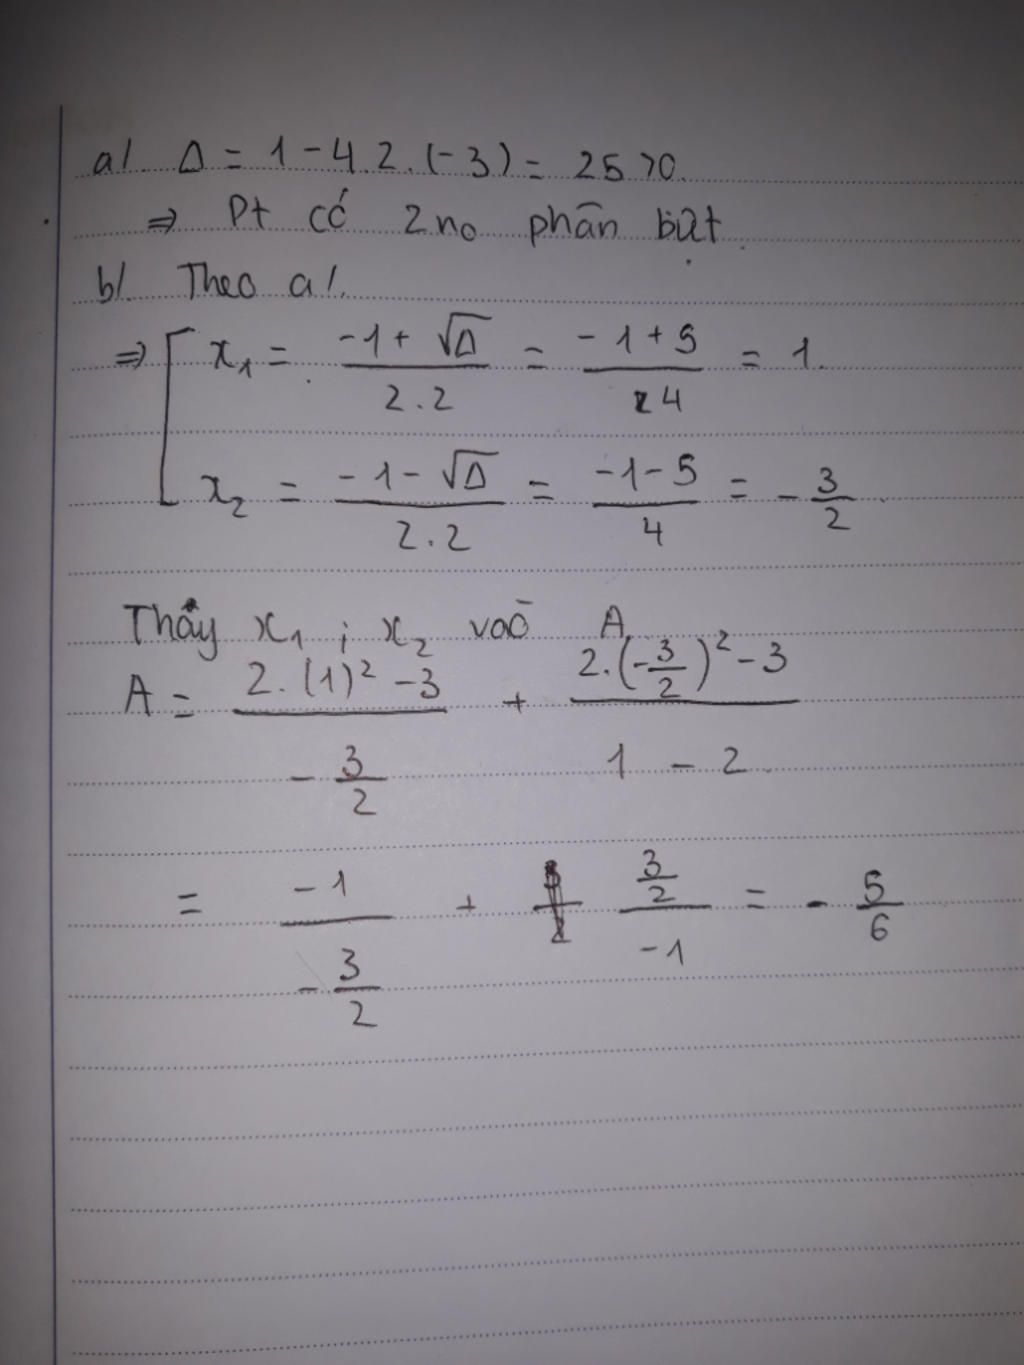 a/ Δ = 1 - 4.2.(-3) = 25 > 0.
⇒ Pt có 2 no phân biệt
b/ Theo a/.
⇒ [ x₁ = (-1 + √Δ)/(2.2) = (-1 + 5)/4 = 1.
x₂ = (-1 - √Δ)/(2.2) = (-1 - 5)/4 = -3/2.
Thấy x₁ ; x₂ vào A
A = (2.(1)² - 3)/(-3/2) + (2.(-3/2)² - 3)/(1 - 2)
= (-1)/(-3/2) + (3/2)/(-1) = -5/6